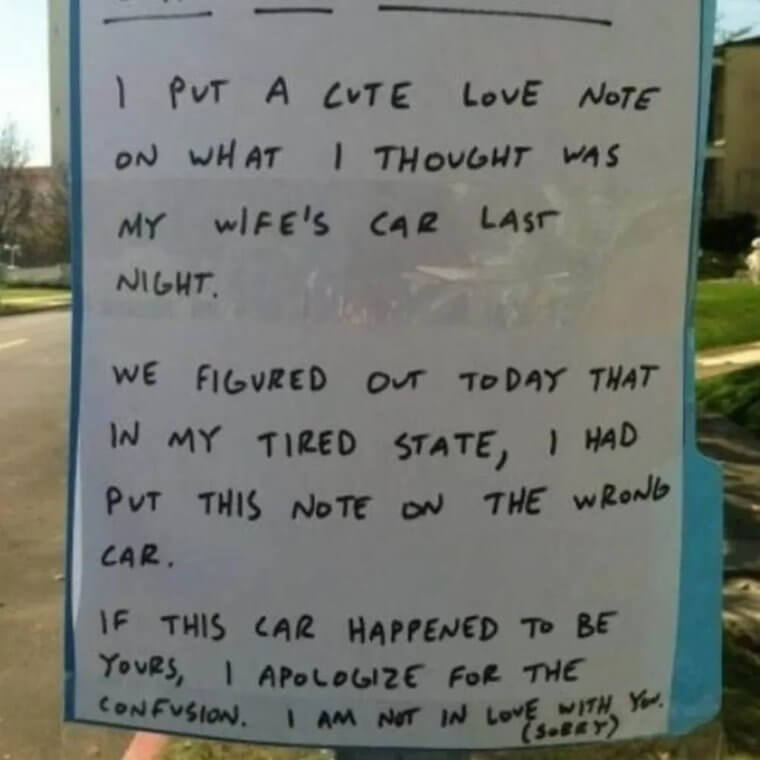 I PUT A CUTE LOVE NOTE
ON WHAT I THOUGHT WAS
MY WIFE'S CAR LAST
NIGHT.
WE FIGURED OUT TODAY THAT
IN MY TIRED STATE, I HAD
PUT THIS NOTE ON THE WRONG
CAR.
IF THIS CAR HAPPENED TO BE
YOURS, I APOLOGIZE FOR THE
CONFUSION. I AM NOT IN LOVE WITH YOU.
(SORRY)